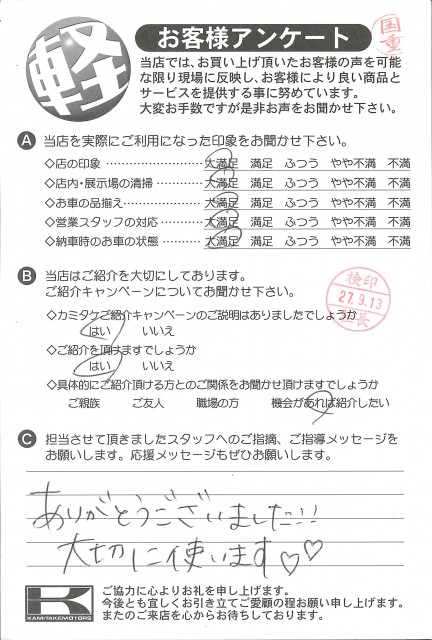 軽
お客様アンケート
国重
当店では、お買い上げ頂いたお客様の声を可能
な限り現場に反映し、お客様により良い商品と
サービスを提供する事に努めています。
大変お手数ですが是非お声をお聞かせ下さい。
A 当店を実際にご利用になった印象をお聞かせ下さい。
◇店の印象 ………………… 大満足 満足 ふつう やや不満 不満
◇店内・展示場の清掃 ………… 大満足 満足 ふつう やや不満 不満
◇お車の品揃え……………… 大満足 満足 ふつう やや不満 不満
◇営業スタッフの対応 ………… 大満足 満足 ふつう やや不満 不満
◇納車時のお車の状態 ………… 大満足 満足 ふつう やや不満 不満
B 当店はご紹介を大切にしております。
ご紹介キャンペーンについてお聞かせ下さい。
検印
27.9.13
店長
◇カミタケご紹介キャンペーンのご説明はありましたでしょうか
はい いいえ
◇ご紹介を頂けますでしょうか
はい いいえ
◇具体的にご紹介頂ける方とのご関係をお聞かせ頂けますでしょうか
ご親族 ご友人 職場の方 機会があれば紹介したい
C 担当させて頂きましたスタッフへのご指摘、ご指導メッセージを
お願いします。応援メッセージもぜひお願いします。
ありがとうございました!!!
大切に使います♡♡
K
KAMITAKEMOTORS
ご協力に心よりお礼を申し上げます。
今後とも宜しくお引き立てご愛顧の程お願い申し上げます。
またのご来店を心からお待ちしております。